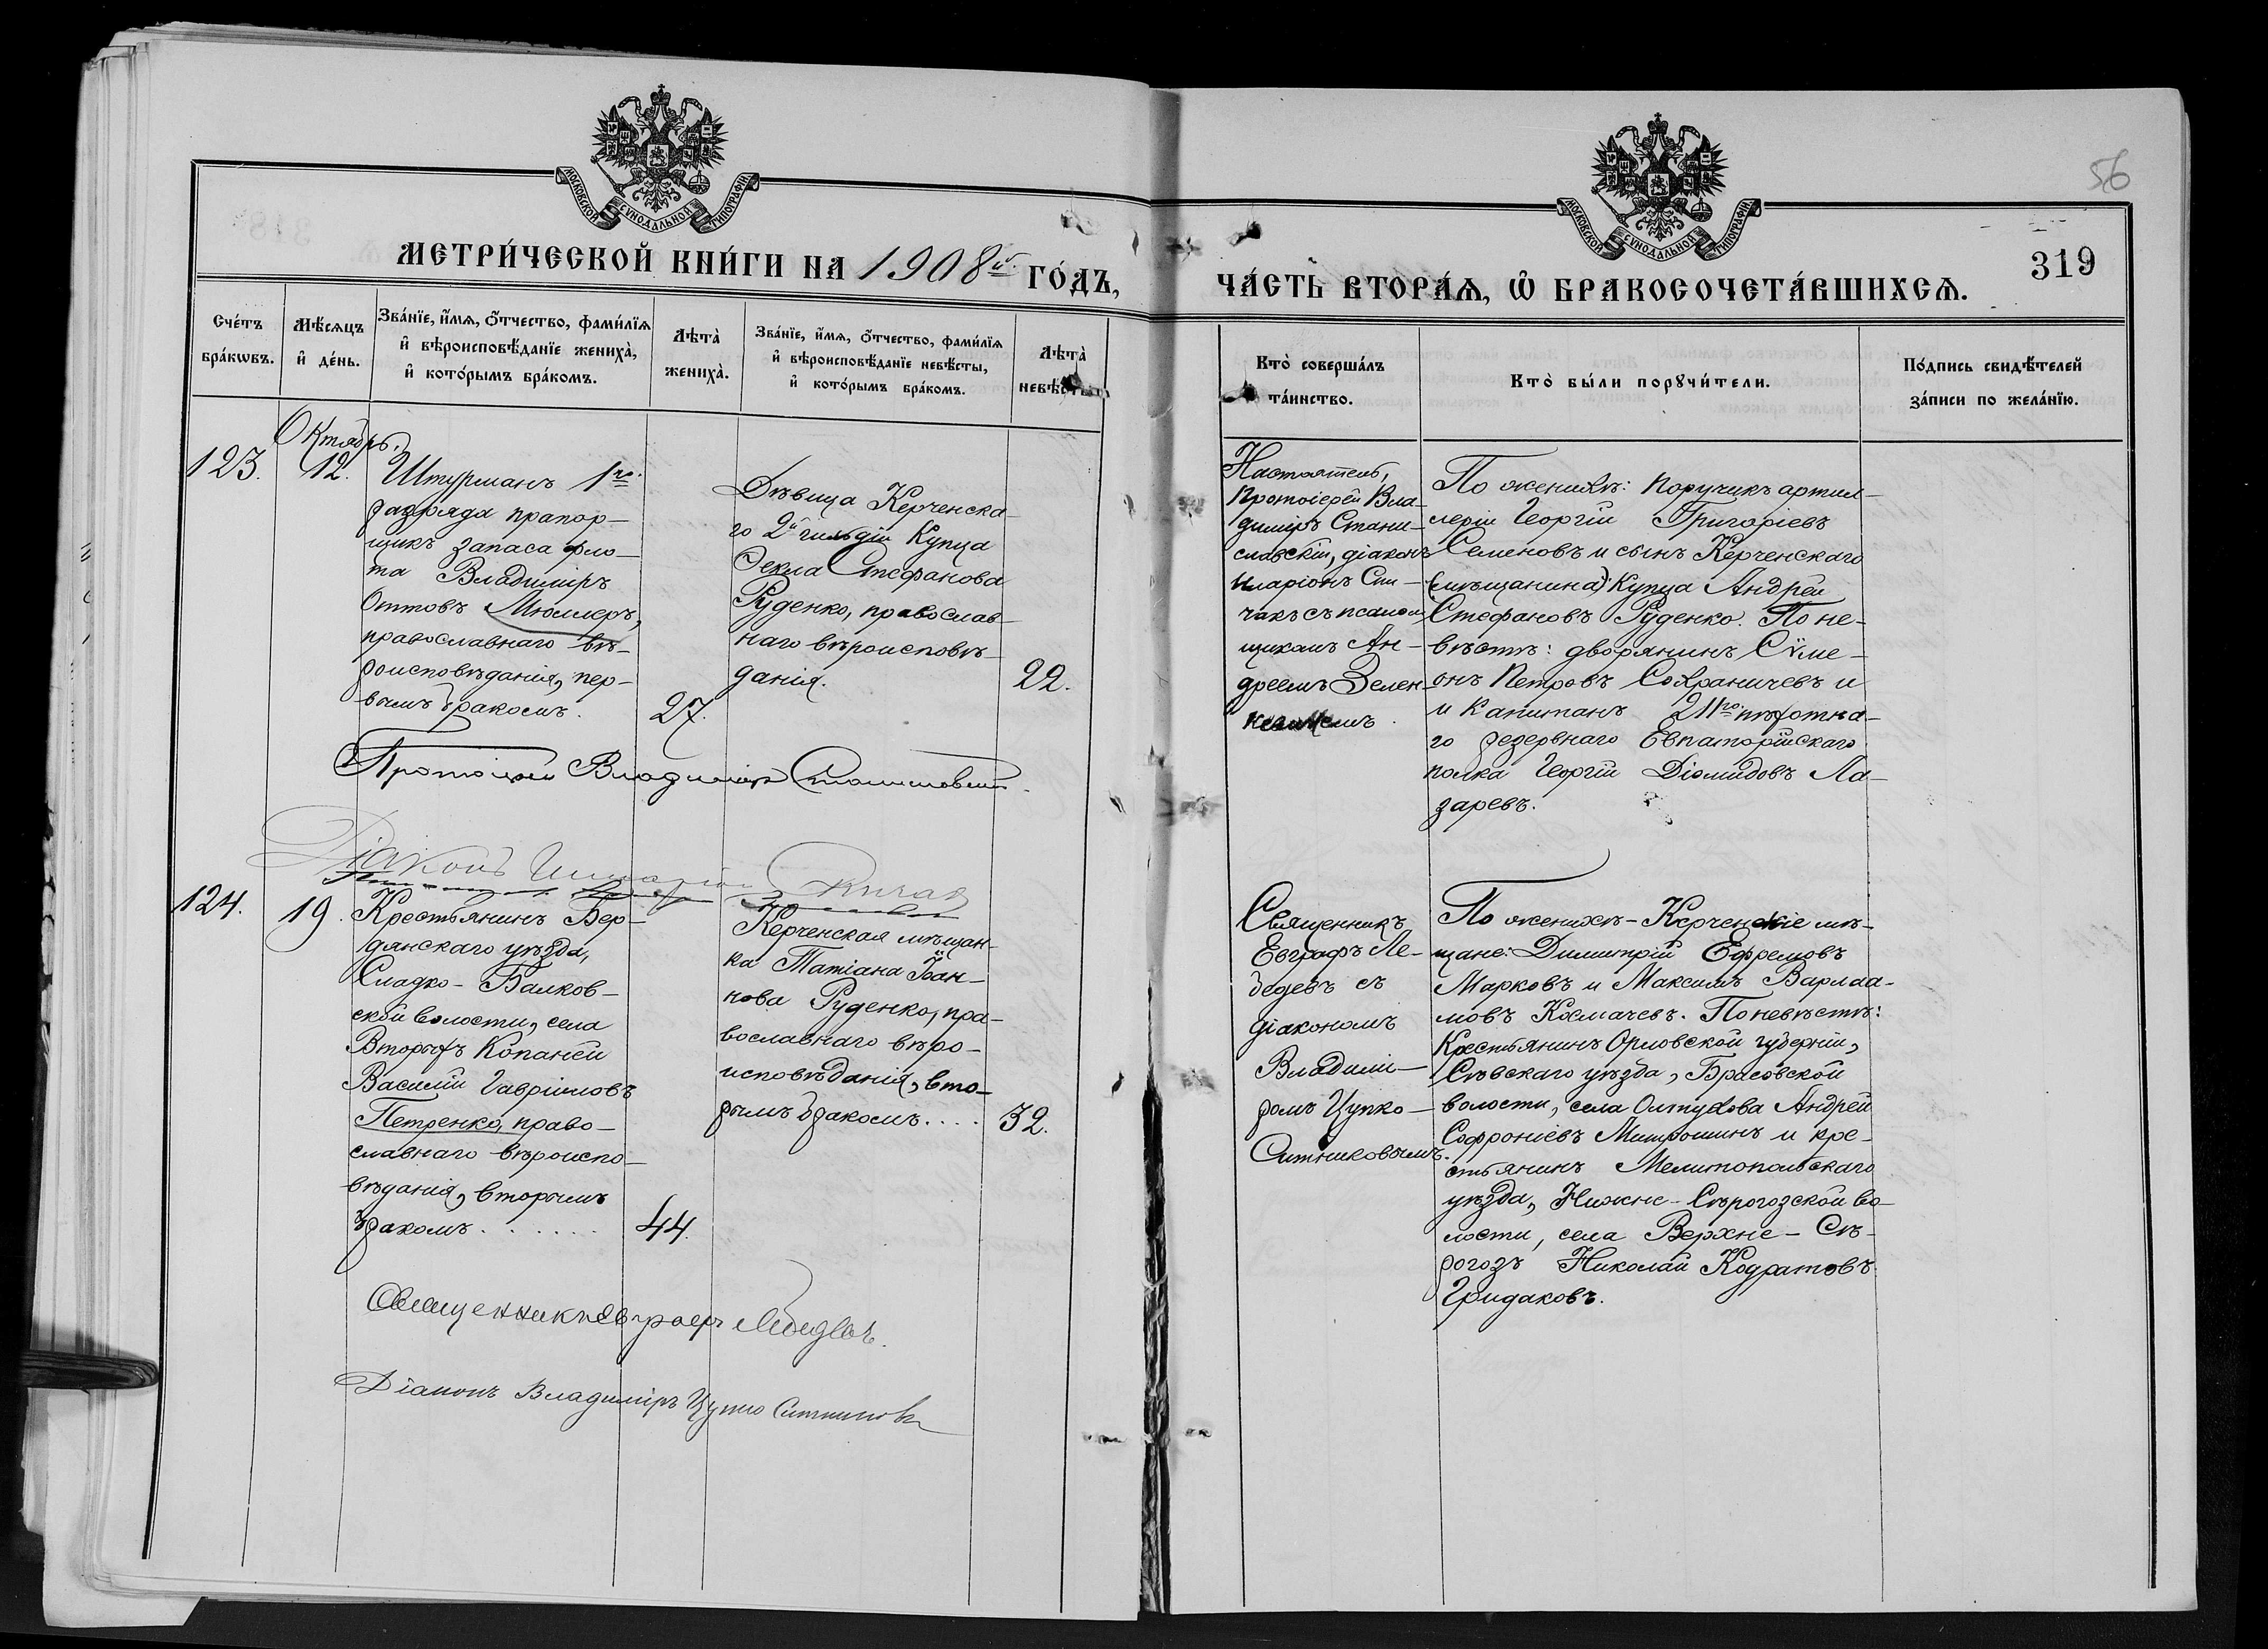 56
319
МОСКОВСКОЙ СѴНОДАЛЬНОЙ ТИПОГРАФІИ
МОСКОВСКОЙ СѴНОДАЛЬНОЙ ТИПОГРАФІИ
МЕТРИ́ЧЕСКОЙ КНИ́ГИ НА 1908й ГО́ДЪ,
ЧА́СТЬ ВТОРА́Ѧ, Ѡ҆ БРАКОСОЧЕТА́ВШИХСѦ.
Сче́тъ
бра́кѡвъ.
Мѣ́сѧцъ
и҆ де́нь.
Зва́нїе, и҆́мѧ, ѻ҆́тчество, фами́лїѧ
и҆ вѣроисповѣ́данїе жениха̀,
и҆ кото́рымъ бра́комъ.
Лѣта̀
жениха̀.
Зва́нїе, и҆́мѧ, ѻ҆́тчество, фами́лїѧ
и҆ вѣроисповѣ́данїе невѣ́сты,
и҆ кото́рымъ бра́комъ.
Лѣта̀
невѣ́сты.
Кто̀ соверша́лъ
та́инство.
Кто̀ бы́ли порꙋчи́тели.
По́дпись свидѣ́телей
за́писи по жела́нїю.
Октябрь.
123.
12.
Штурманъ 1го
разряда прапор-
щикъ запаса фло-
та Владиміръ
Оттовъ Мюллеръ,
православнаго вѣ-
роисповѣданія, пер-
вымъ бракомъ.
27.
Дѣвица Керченска-
го 2й гильдіи Купца
Ѳекла Стефанова
Руденко, православ-
наго вѣроисповѣ-
данія.
22.
Настоятель,
Протоіерей Вла-
диміръ Стани-
славскій, діаконъ
Иларіонъ Спи-
чакъ съ псалом-
щикомъ Ан-
дреемъ Зелен-
По женихѣ: Поручикъ артил-
леріи Георгій Григоріевъ
Семеновъ и сынъ Керченскаго
(мѣщанина) Купца Андрей
Стефановъ Руденко. По не-
вѣстѣ: дворянинъ Сѵме-
онъ Петровъ Сохраничевъ и
и Капитанъ 211го пѣхотна-
го резервнаго Евпаторійскаго
полка Георгій Діомидовъ Ла-
заревъ.
Протоіерей Владиміръ Станиславскій
Діаконъ Иларіонъ Спичакъ
124.
19.
Крестьянинъ Бер-
дянскаго уѣзда,
Сладко-Балков-
ской волости, села
Вторыхъ Копаней
Василій Гавріиловъ
Петренко, право-
славнаго вѣроиспо-
вѣданія, вторымъ
бракомъ......
44.
Керченская мѣщан-
ка Татіана Іоан-
нова Руденко, пра-
вославнаго вѣро-
исповѣданія, вто-
рымъ бракомъ....
32.
Священникъ
Евграфъ Ле-
бедевъ съ
діакономъ
Владимі-
ромъ Цупко-
Ситниковымъ.
По женихѣ - Керченскіе мѣ-
щане: Димитрій Ефремовъ
Марковъ и Максимъ Варлаа-
мовъ Космачевъ. По невѣстѣ:
Крестьянинъ Орловской губерніи,
Сѣвскаго уѣзда, Брасовской
волости, села Олтухова Андрей
Софроніевъ Митрошинъ и кре-
стьянинъ Мелитопольскаго
уѣзда, Нижне-Сѣрогозской во-
лости, села Верхне-Сѣ-
рогозъ Николай Кодратовъ
Гридаковъ.
Священникъ Евграфъ Лебедевъ.
Діаконъ Владиміръ Цупко Ситниковъ